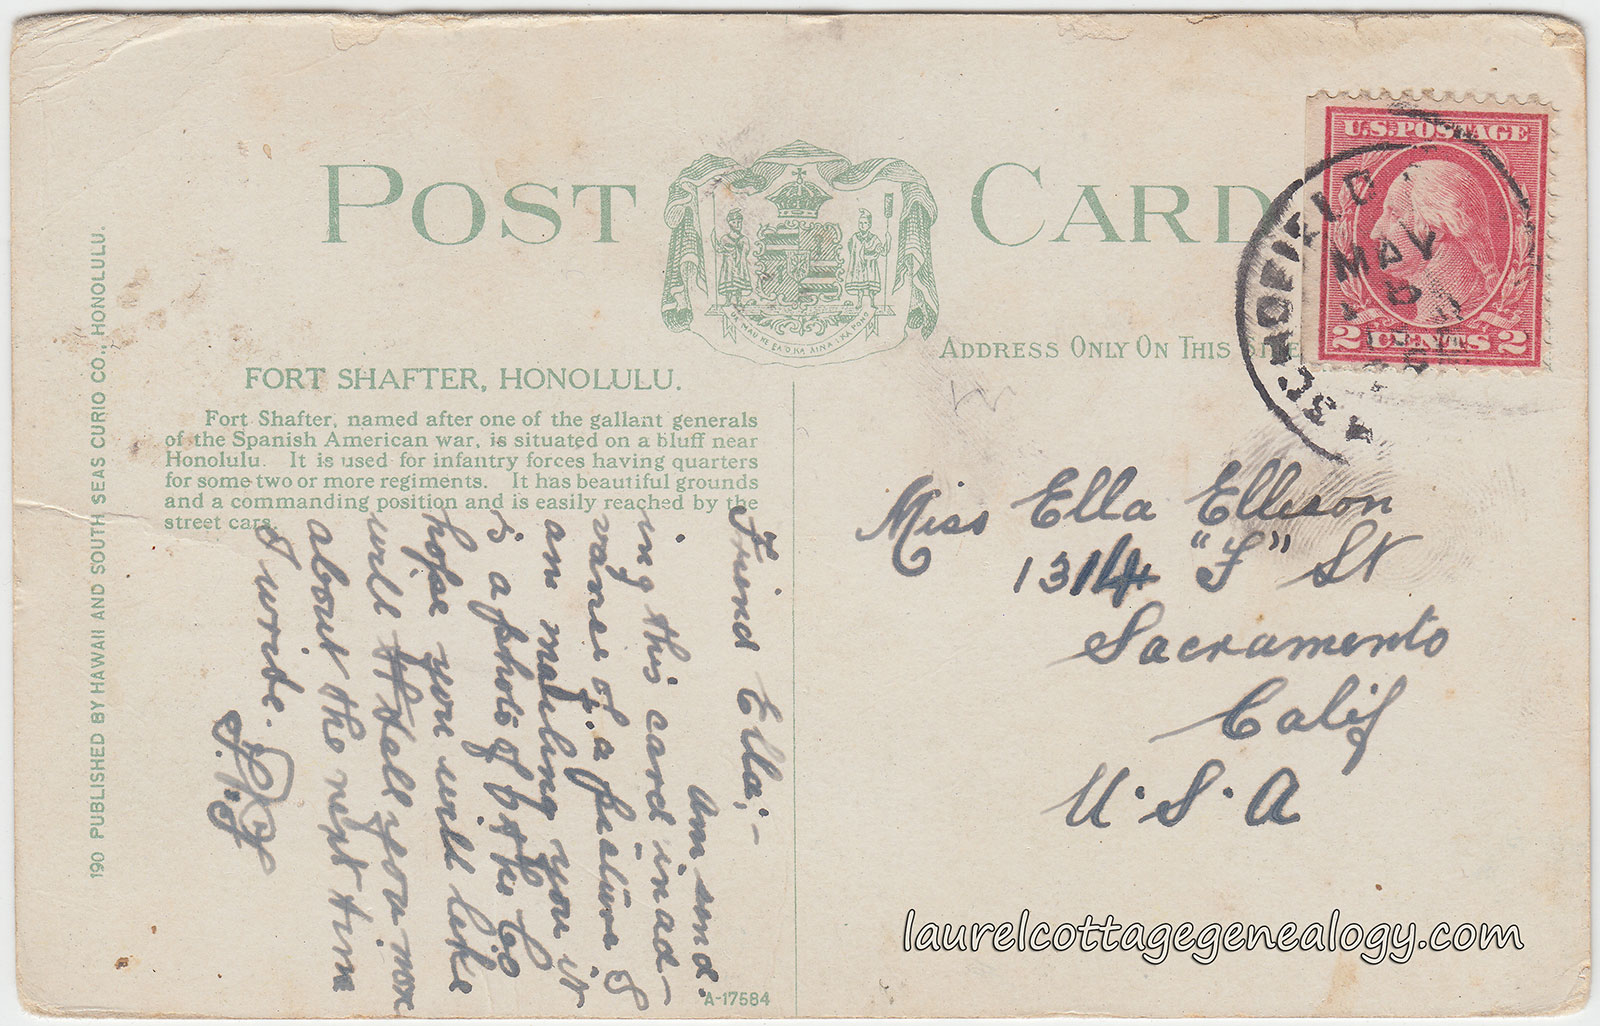 POST CARD
UA MAU KE EA O KA AINA I KA PONO
ADDRESS ONLY ON THIS SIDE
U.S.POSTAGE
2 CENTS 2
SCHOFIELD
MAY
FORT SHAFTER, HONOLULU.
Fort Shafter, named after one of the gallant generals
of the Spanish American war, is situated on a bluff near
Honolulu. It is used for infantry forces having quarters
for some two or more regiments. It has beautiful grounds
and a commanding position and is easily reached by the
street cars.
190 PUBLISHED BY HAWAII AND SOUTH SEAS CURIO CO., HONOLULU.
Friend Ella;-
Am send.
ing this card in ad-
vance of a picture I
am mailing you it
is a photo of the Co
hope you will like
will tell you more
about the next time
I write.
A-17584
Miss Ella Elleson
1314 "F" St
Sacramento
Calif
U.S.A
laurelcottagegenealogy.com